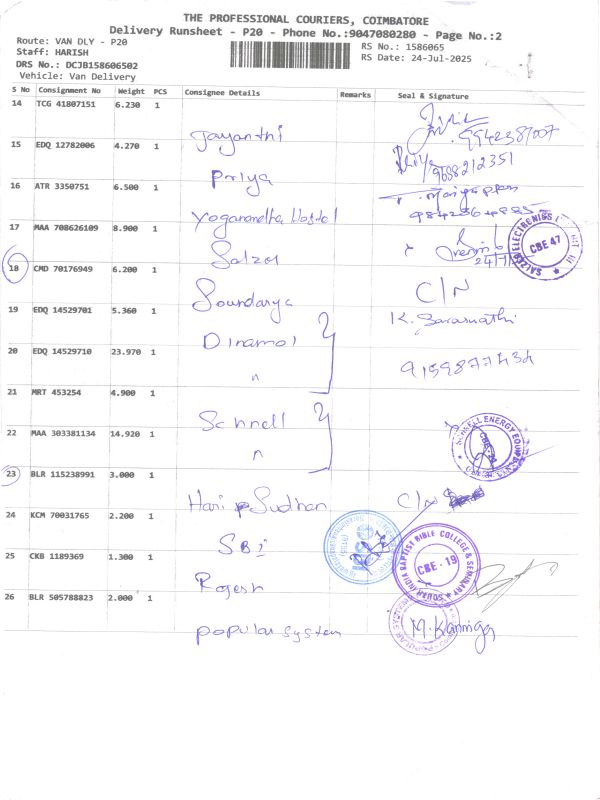 THE PROFESSIONAL COURIERS, COIMBATORE
Delivery Runsheet - P20 - Phone No.:9047080280 - Page No.:2
Route: VAN DLY - P20
RS No.: 1586065
Staff: HARISH
RS Date: 24-Jul-2025
DRS No.: DCJB158606502
Vehicle: Van Delivery
S No Consignment No Weight PCS Consignee Details Remarks Seal & Signature
14 TCG 41807151 6.230 1
Jayanthi 9942387007
15 EDQ 12782006 4.270 1
Priya Priya 9688212351
16 ATR 3350751 6.500 1
Yogananetha Hostel
17 MAA 708626109 8.900 1
Salzer
SALZER ELECTRONICS CBE 47
18 CMD 70176949 6.200 1
Soundarya C/N
19 EDQ 14529701 5.360 1
Dinamal K. Saraswathi
20 EDQ 14529710 23.970 1
" 9159877434
21 MRT 453254 4.900 1
Schnell
22 MAA 303381134 14.920 1
"
SCHNELL ENERGY EQUIP
23 BLR 115238991 3.000 1
Hari Sudhan C/N
24 KCM 70031765 2.200 1
SBI
25 CKB 1189369 1.300 1
Rogesh
SOUTH INDIA BAPTIST BIBLE COLLEGE & SEMINARY CBE - 19
26 BLR 505788823 2.000 1
popular system M. Kanniga